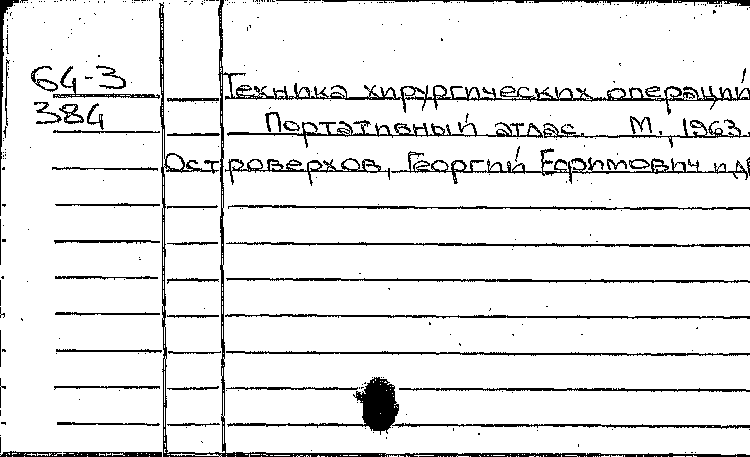 64-3
384
Техника хирургических операций
Портативный атлас. М., 1963.
Островерхов, Георгий Ефимович и др